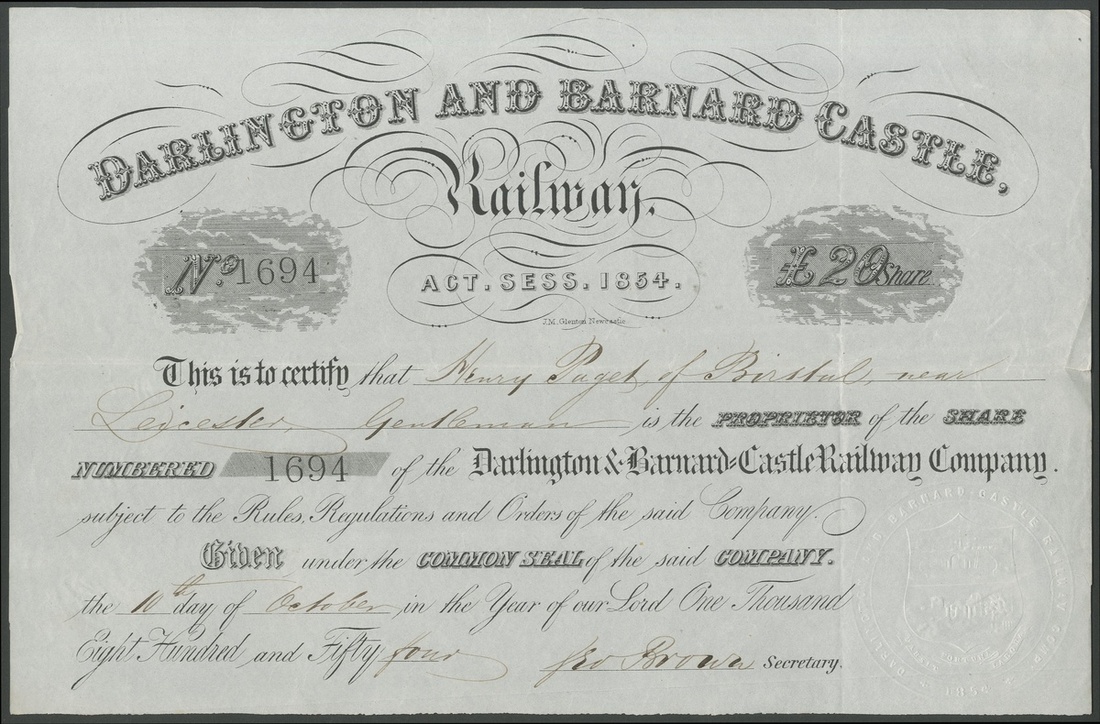 DARLINGTON AND BARNARD CASTLE,
Railway.
No. 1694
£20 Share
ACT. SESS. 1854.
J.M. Glenton Newcastle
This is to certify that Henry Paget, of Birstal, near
Leicester Gentleman is the PROPRIETOR of the SHARE
NUMBERED 1694 of the Darlington & Barnard=Castle Railway Company.
subject to the Rules, Regulations and Orders of the said Company.
Given under the COMMON SEAL of the said COMPANY.
the 10th day of October, in the Year of our Lord One Thousand
Eight Hundred and Fifty four Geo Brown Secretary.
DARLINGTON & BARNARD-CASTLE RAILWAY COMPANY
1854